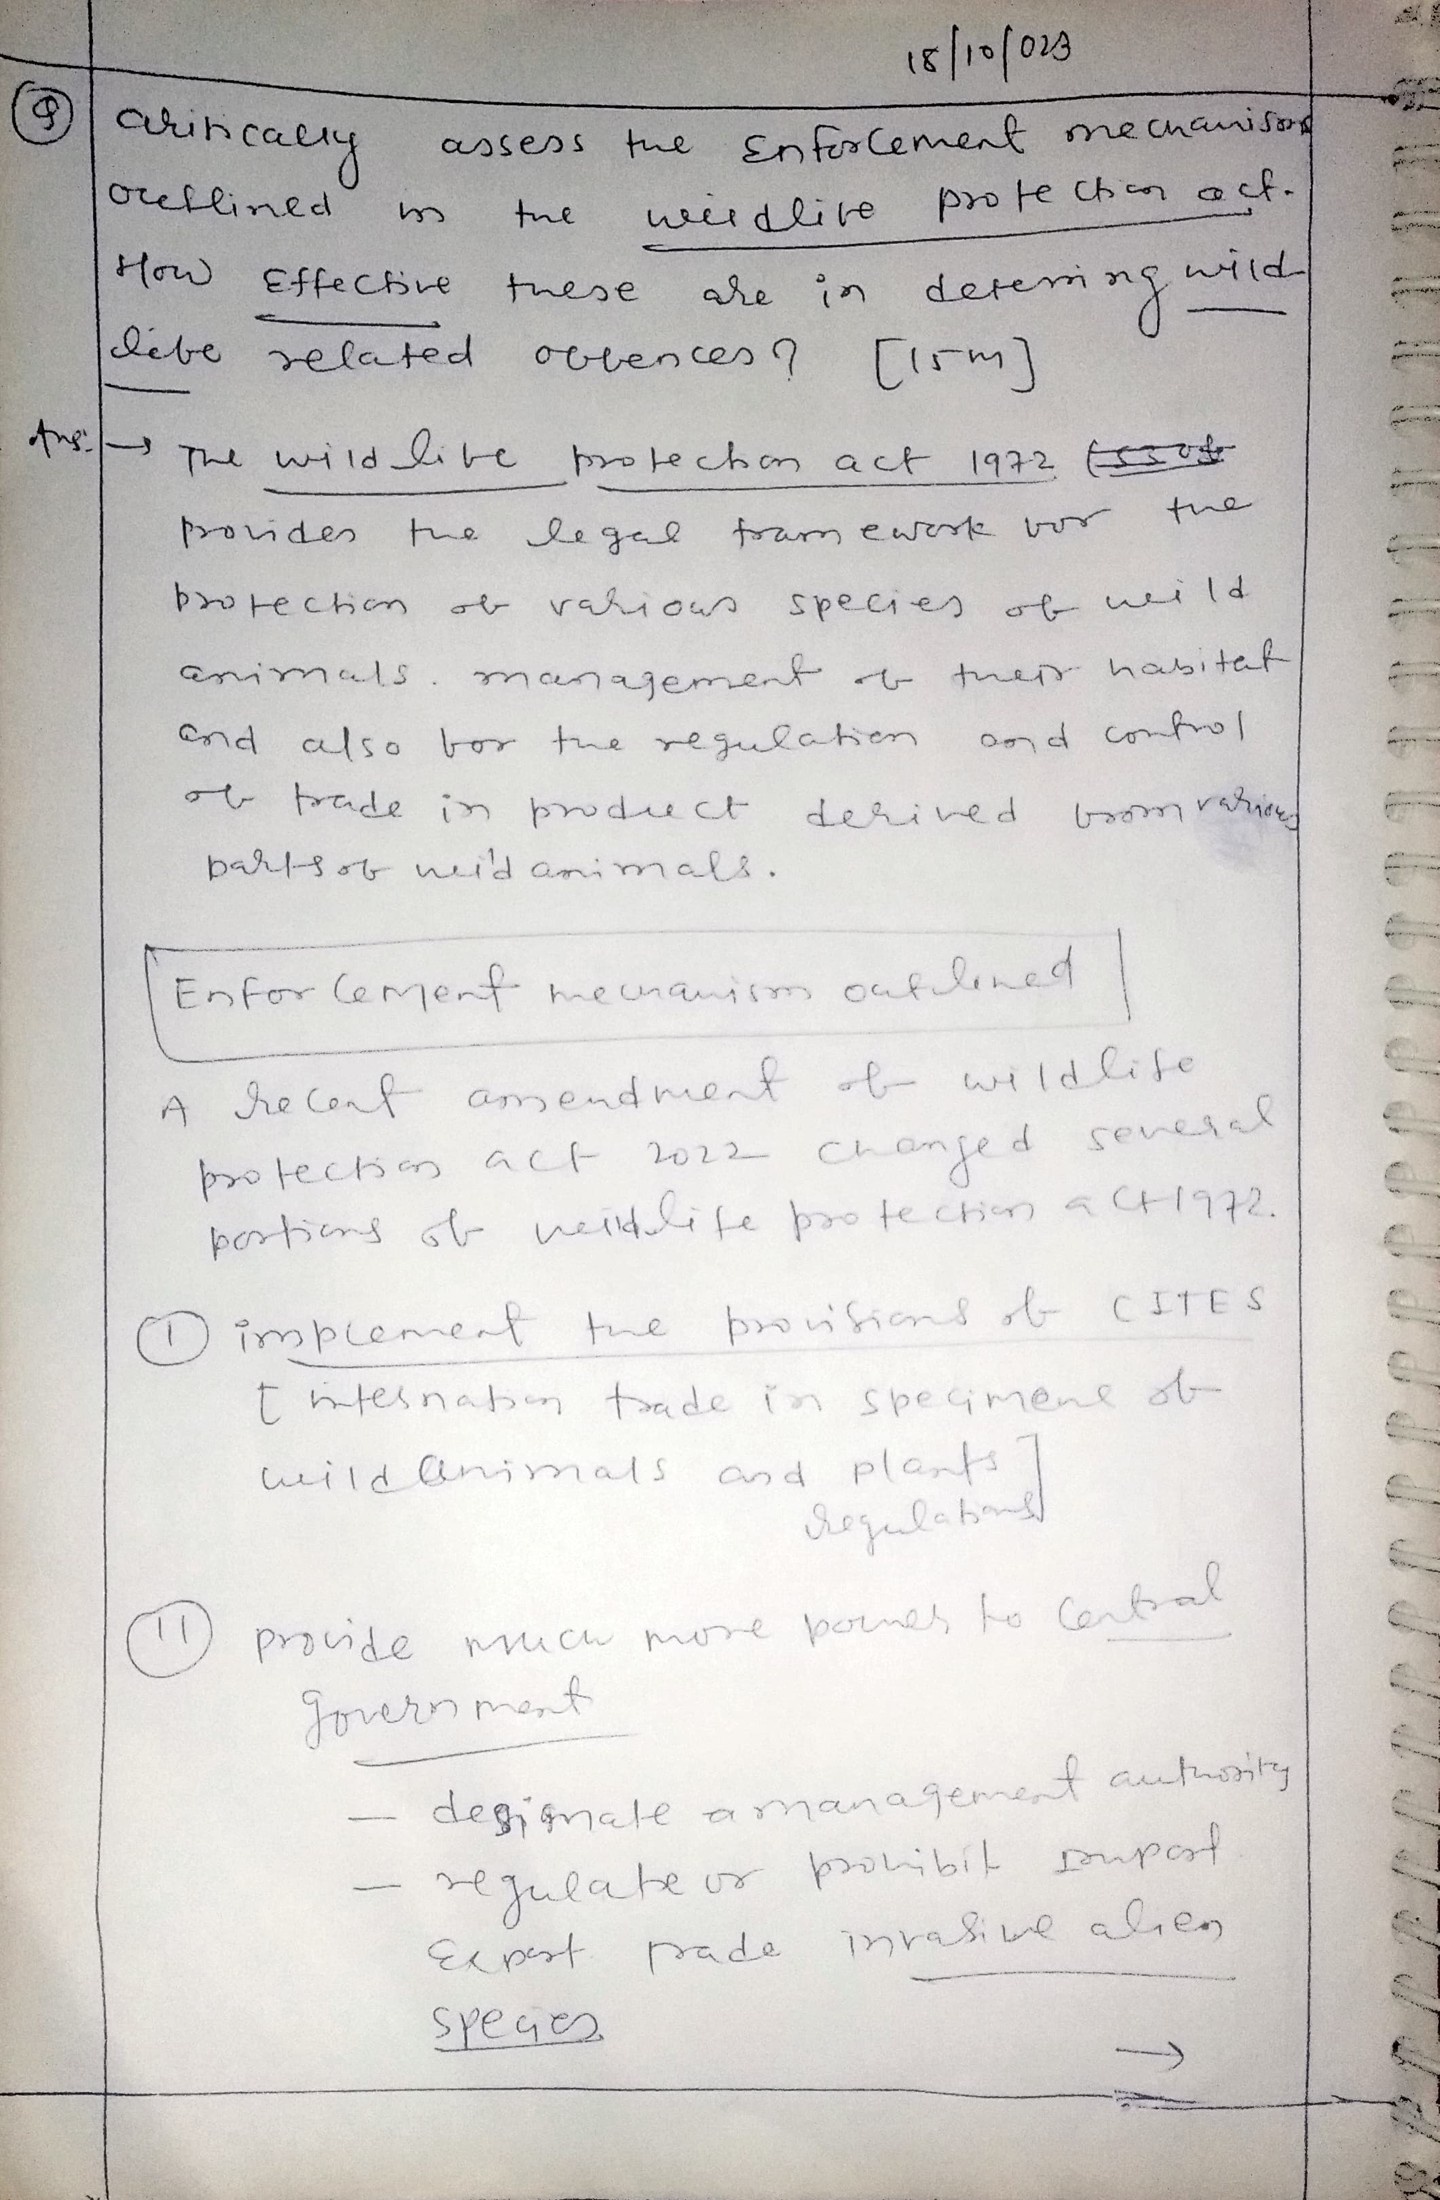 18/10/023
Q critically assess the Enforcement mechanism
outlined in the wildlife protection act.
How Effective these are in deterring wild
life related offences? [15m]
Ans: → The wild life protection act 1972
provides the legal framework for the
protection of various species of wild
animals. management of their habitat
and also for the regulation and control
of trade in product derived from various
parts of wild animals.
Enforcement mechanism outlined
A recent amendment of wildlife
protection act 2022 changed several
portions of wildlife protection act 1972.
I implement the provisions of CITES
[internation trade in specimens of
wild animals and plants]
regulations
II provide much more power to Central
government
— designate a management authority
— regulate or prohibit import
Export trade invasive alien
species
→